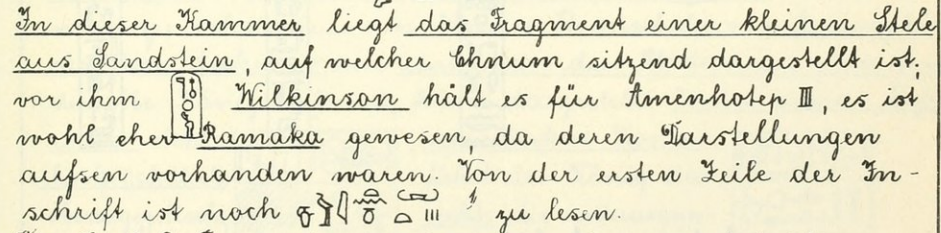 In dieser Kammer liegt das Fragment einer kleinen Stele
aus Sandstein, auf welcher Chnum sitzend dargestellt ist;
vor ihm Wilkinson hält es für Amenhotep III, es ist
wohl eher Ramaka gewesen, da deren Darstellungen
aufsen vorhanden waren. Von der ersten Zeile der In-
schrift ist noch zu lesen.